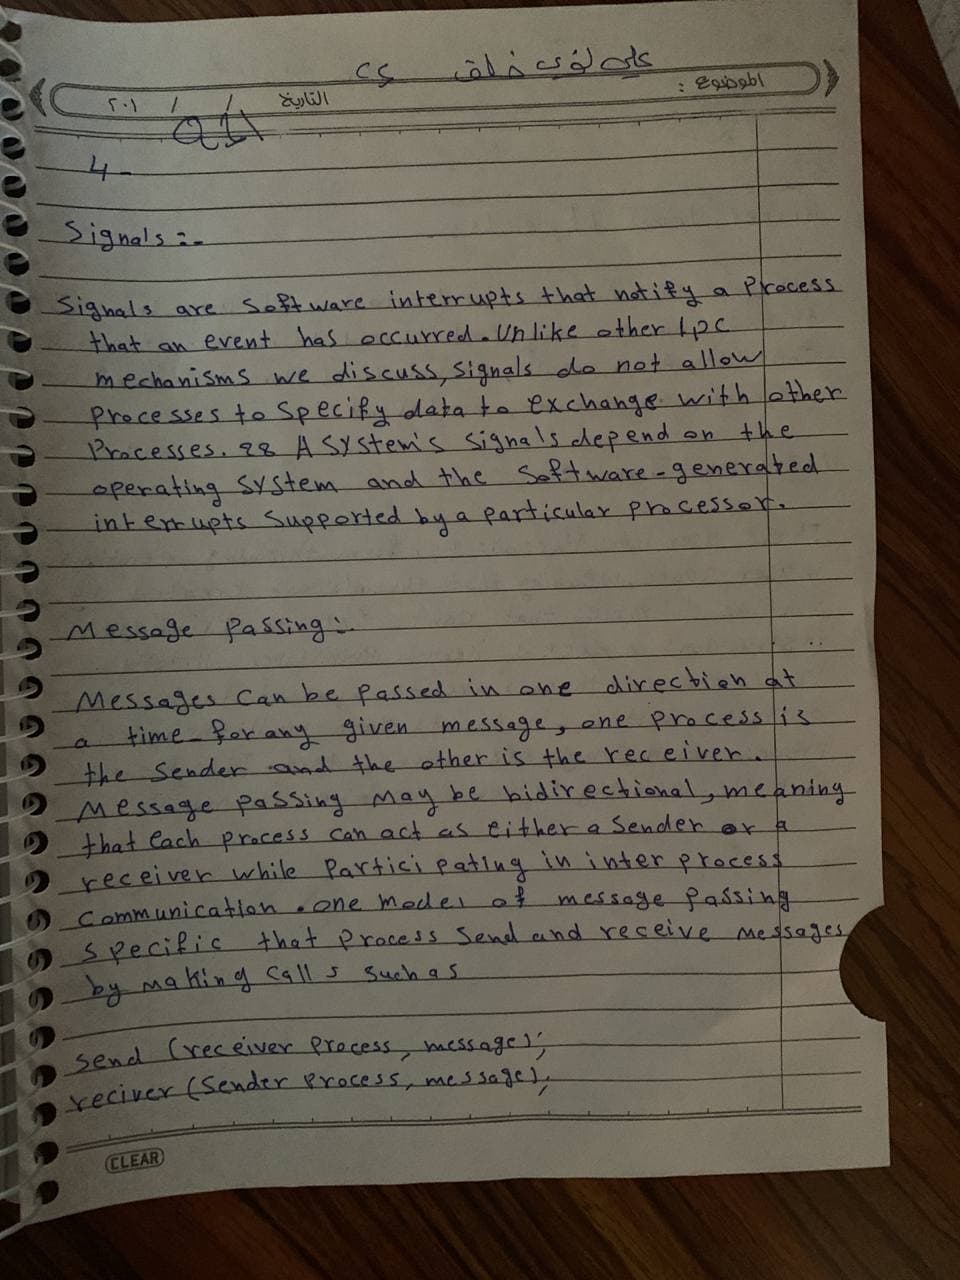 علي لؤي خلف CS
الموضوع :
التاريخ / / ٢٠١
Q1
4-
Signals :-
Signals are Software interrupts that notify a Process
that an event has occurred. Unlike other Ipc
mechanisms we discuss, signals do not allow
Processes to Specify data to exchange with other
Processes. 28 A SYstem's Signals depend on the
operating SYStem and the Software-generated
interrupts Supported by a particular processor.
Message Passing :-
Messages Can be passed in one direction at
a time for any given message, one process is
the Sender and the other is the receiver.
Message passing may be bidirectional, meaning
that Each process can act as either a Sender or a
receiver while Participating in inter process
Communication. one model of message passing
Specific that process Send and receive messages
by making Calls Such as
send (receiver process, message);
reciver (Sender process, message);
CLEAR